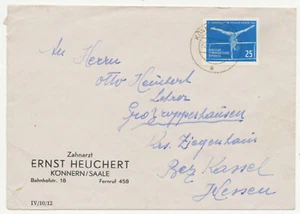 An Herrn
Otto Heuchert
Lehrer
Großropperhausen
Krs. Ziegenhain
Bez. Kassel
Hessen
25
Zahnarzt
ERNST HEUCHERT
KÖNNERN/SAALE
Bahnhofstr. 18 Fernruf 458
IV/10/22